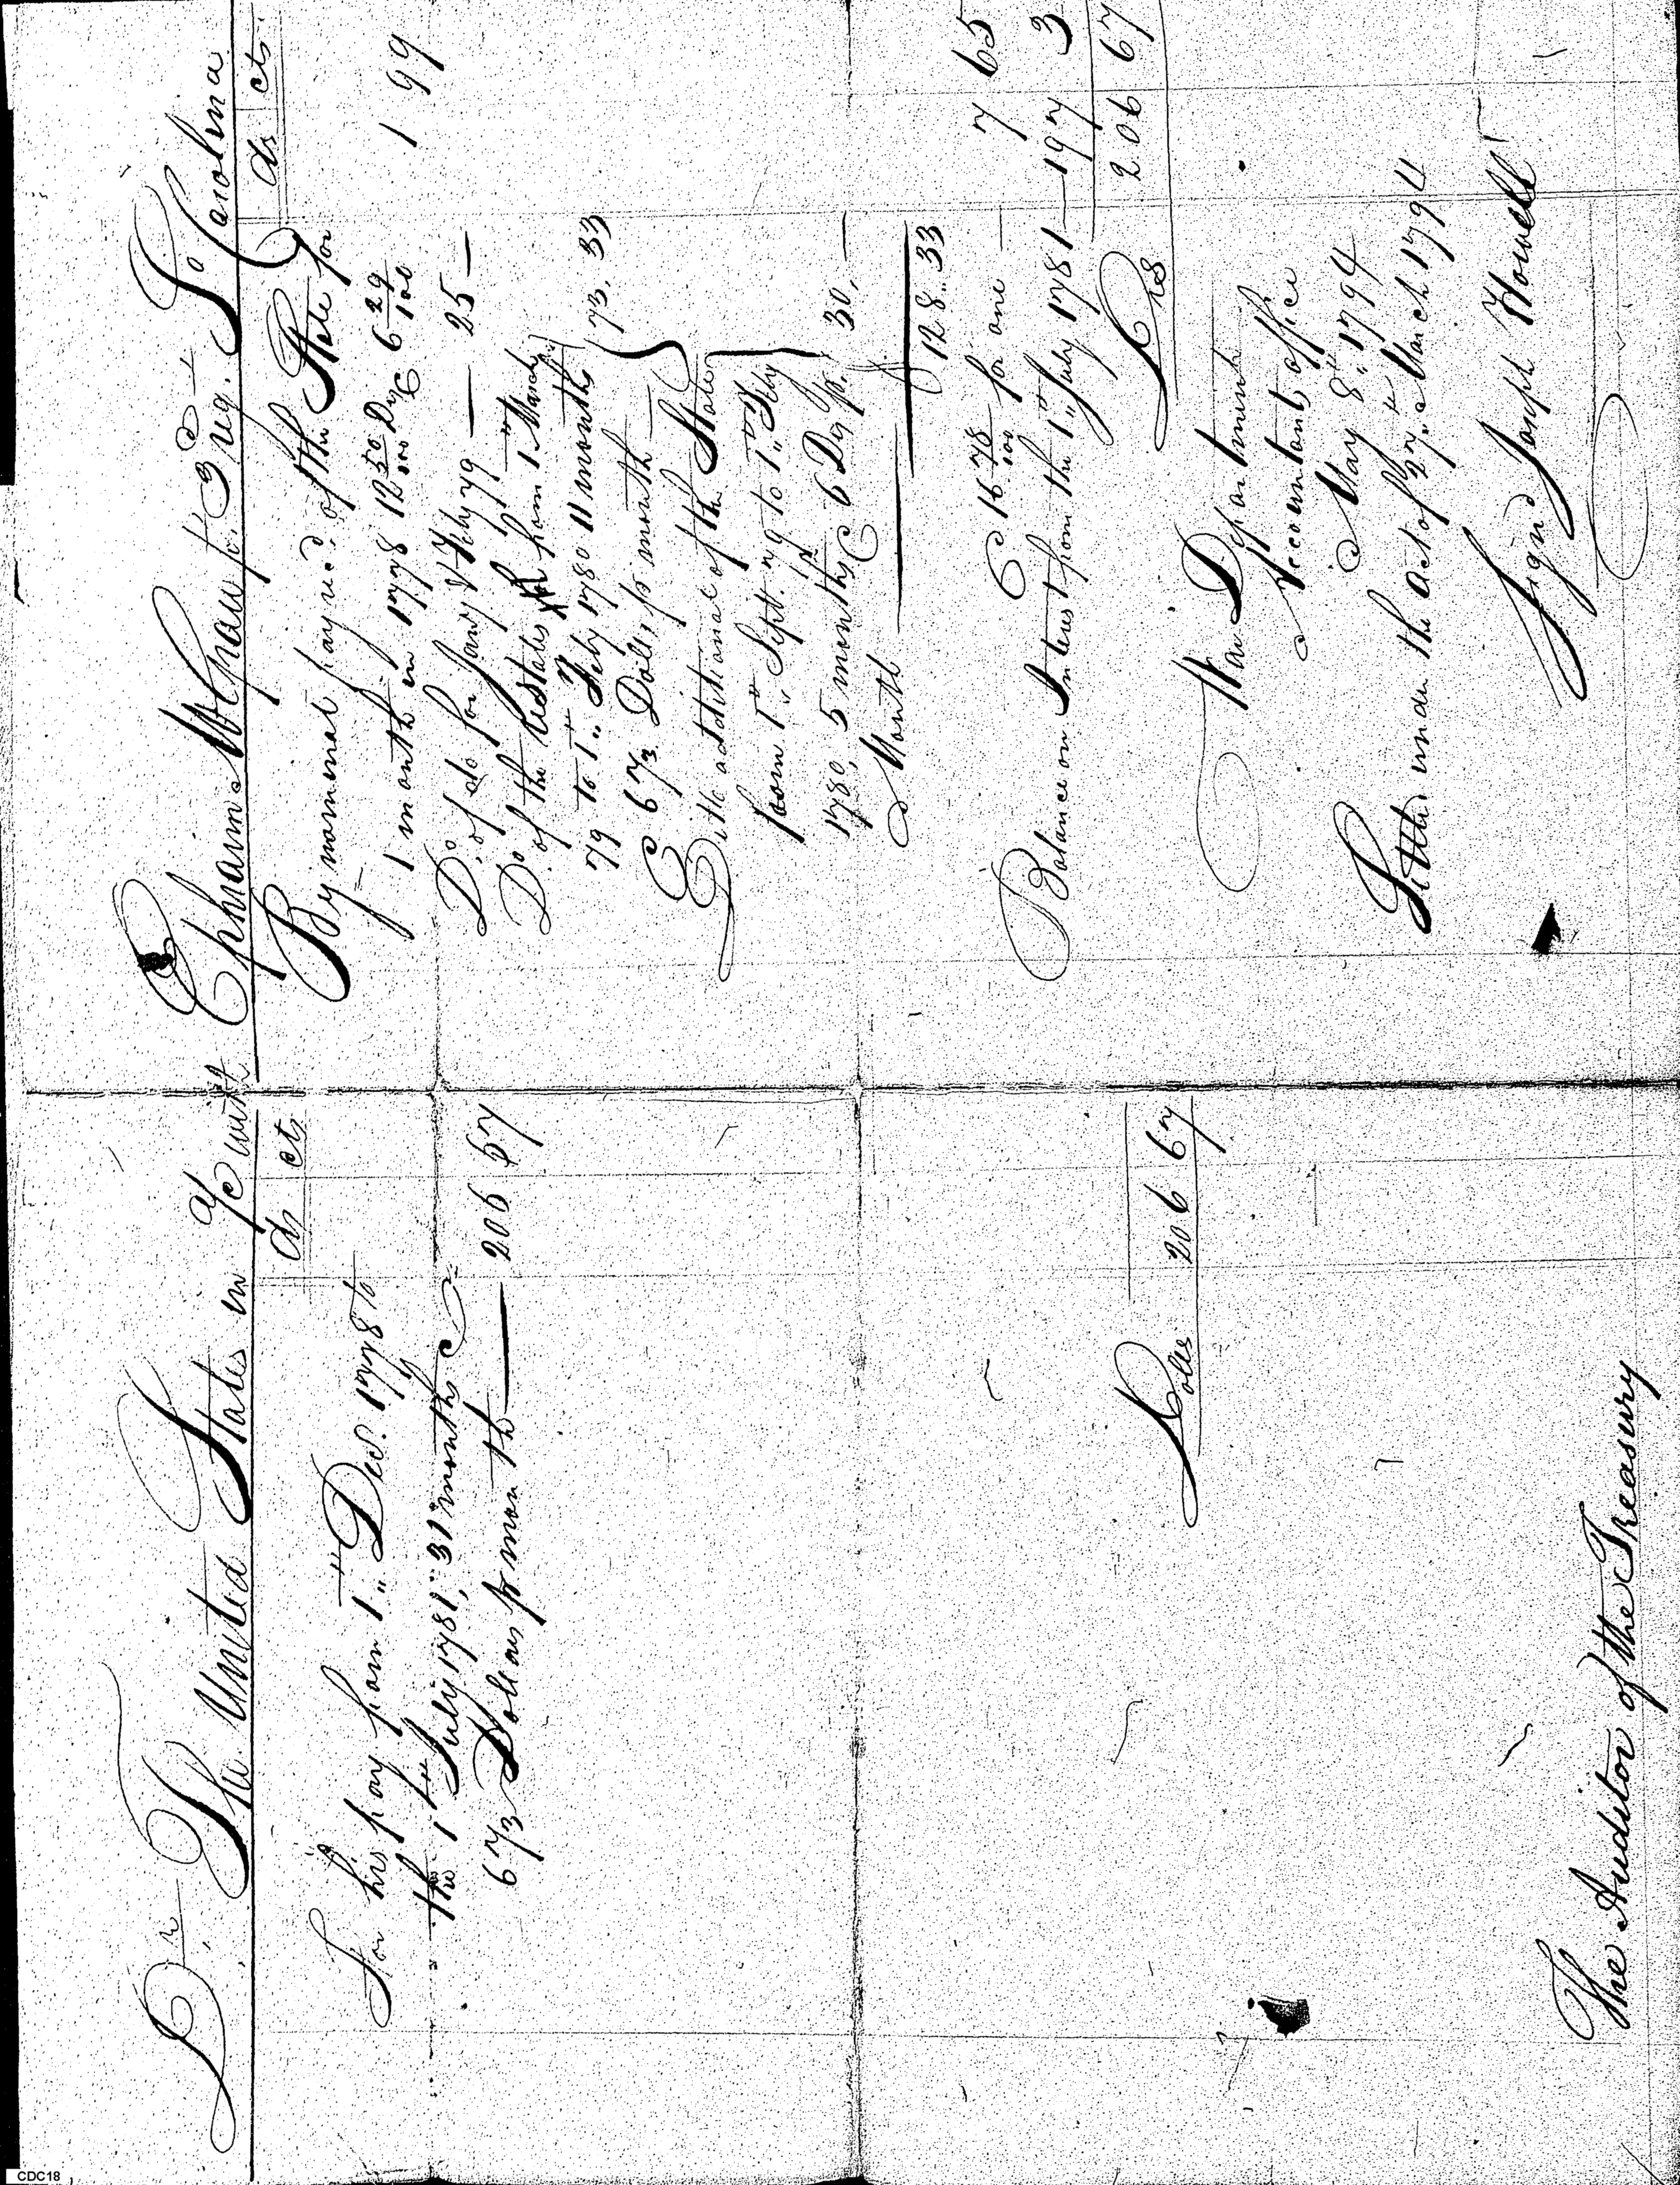 Dr. The United States in a/c with Ephraim McGraw pt. 3 Reg. So Carolina
ds cts
For his pay from 1st Decr. 1778 to
the 1st July 1781, 31 months @
6 2/3 Dollars pr month — 206 67
Dolls. 206 67
The Auditor of the Treasury
Crds cts
By nominal pay recd. of the State for
1 month in 1778 12 50/100 Ds @ 6 29/100 1 99
Do. of do for Jany & Feby 79 — 25 —
Do. of the list dates from 1st March
79 to 1st Feby 1780 11 months 73. 33
@ 6 2/3 Dolls. pr month —
Ditto additional of the State
from 1st Sept. 79 to 1st Feby
1780, 5 months @ 6 Ds pr. 30. —
Month
128. 33
@ 16 78/100 for one — 7 65
Balance on Interest from the 1st July 1781 — 197 3
206 67
War Department
Accountants office
May 8th 1794
Settled under the act of 27th March 1794
Signd Joseph Howell
CDC18